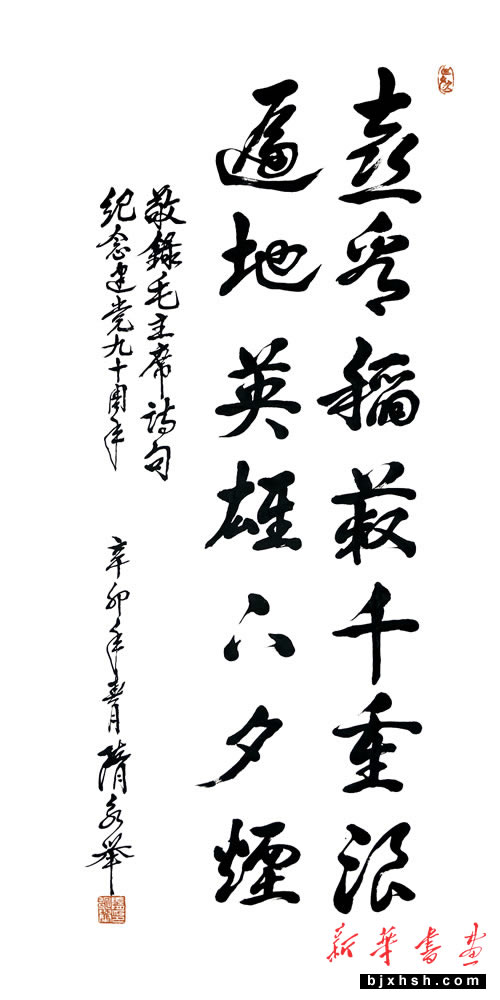 喜看稻菽千重浪
遍地英雄下夕煙
敬錄毛主席诗句
纪念建党九十周年
辛卯年 隋永举
新华书画
bjxhsh.com